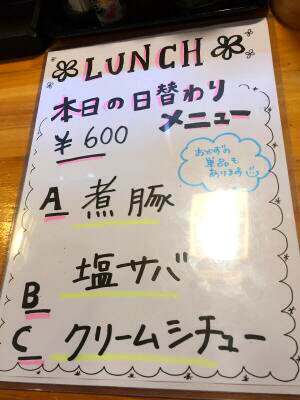 LUNCH
本日の日替わり
¥600 メニュー
おかずの
単品も
あります
A 煮豚
B 塩サバ
C クリームシチュー